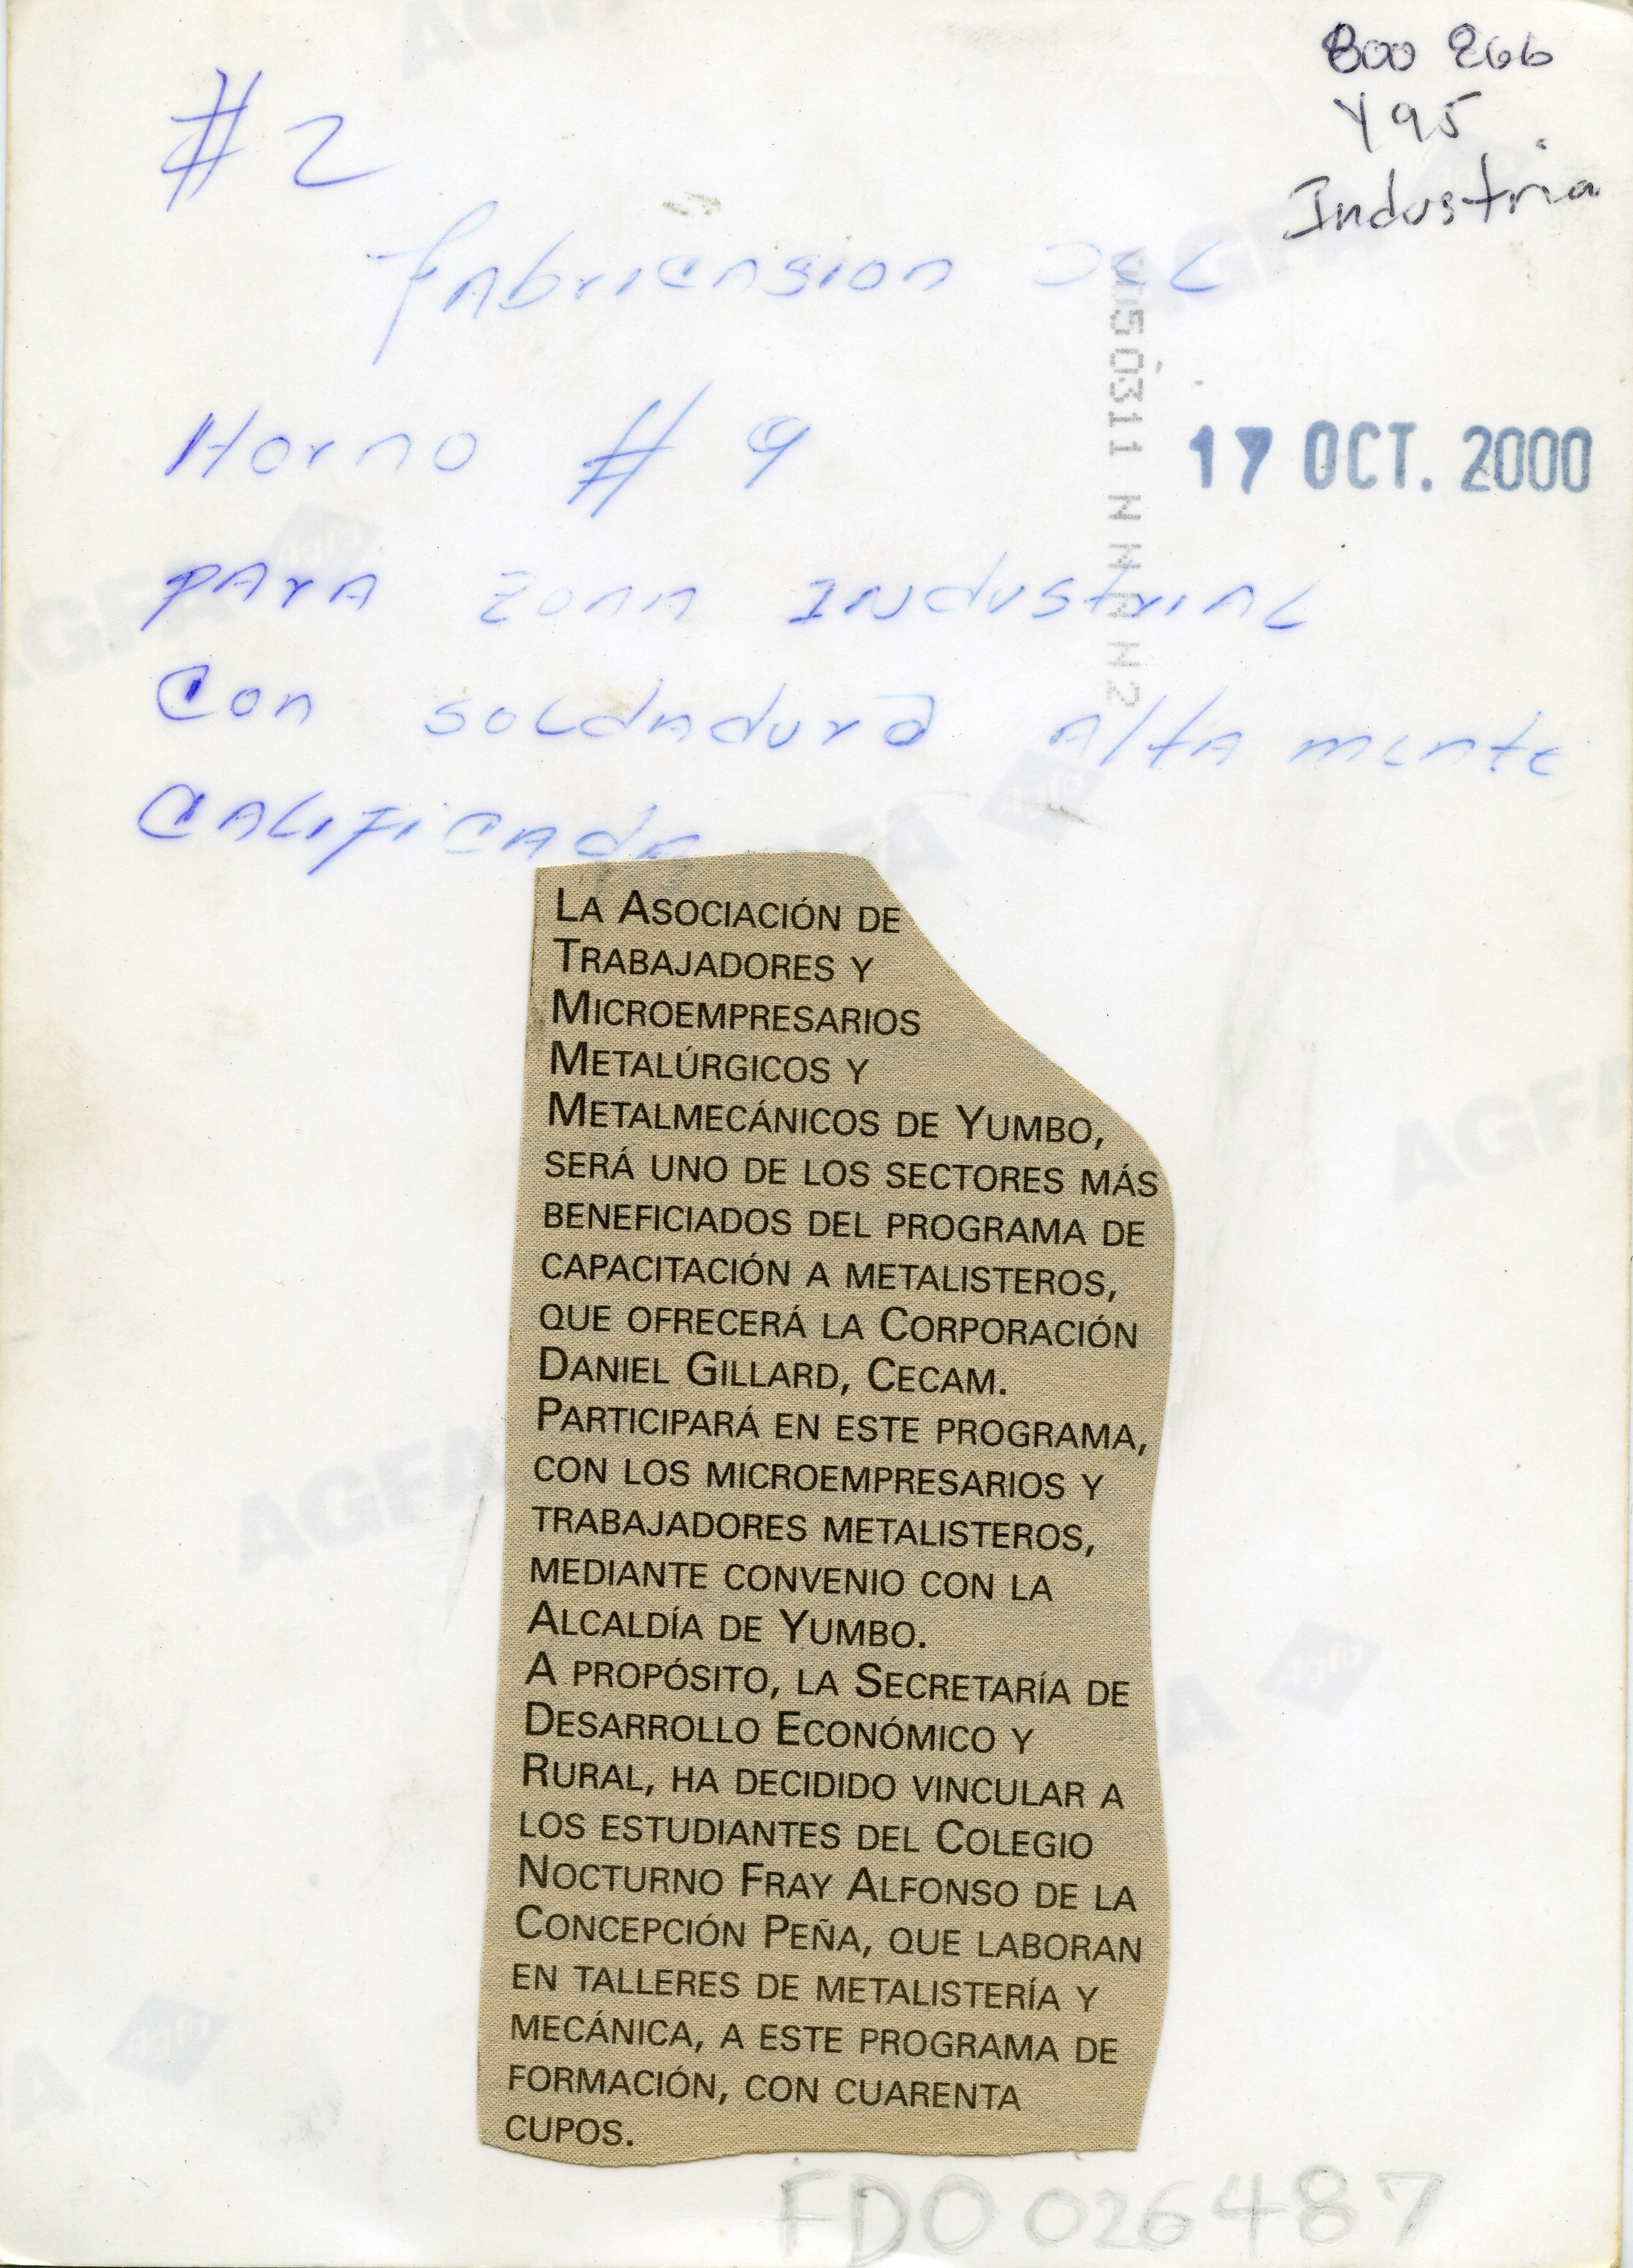 800 266
Y95
Industria
#2
fabricansion del
Horno # 9
17 OCT. 2000
para zona Industrial
con soldadura alta mente
calificada
La Asociación de
Trabajadores y
Microempresarios
Metalúrgicos y
Metalmecánicos de Yumbo,
será uno de los sectores más
beneficiados del programa de
capacitación a metalisteros,
que ofrecerá la Corporación
Daniel Gillard, Cecam.
Participará en este programa,
con los microempresarios y
trabajadores metalisteros,
mediante convenio con la
Alcaldía de Yumbo.
A propósito, la Secretaría de
Desarrollo Económico y
Rural, ha decidido vincular a
los estudiantes del Colegio
Nocturno Fray Alfonso de la
Concepción Peña, que laboran
en talleres de metalistería y
mecánica, a este programa de
formación, con cuarenta
cupos.
FDO 026487
AGFA